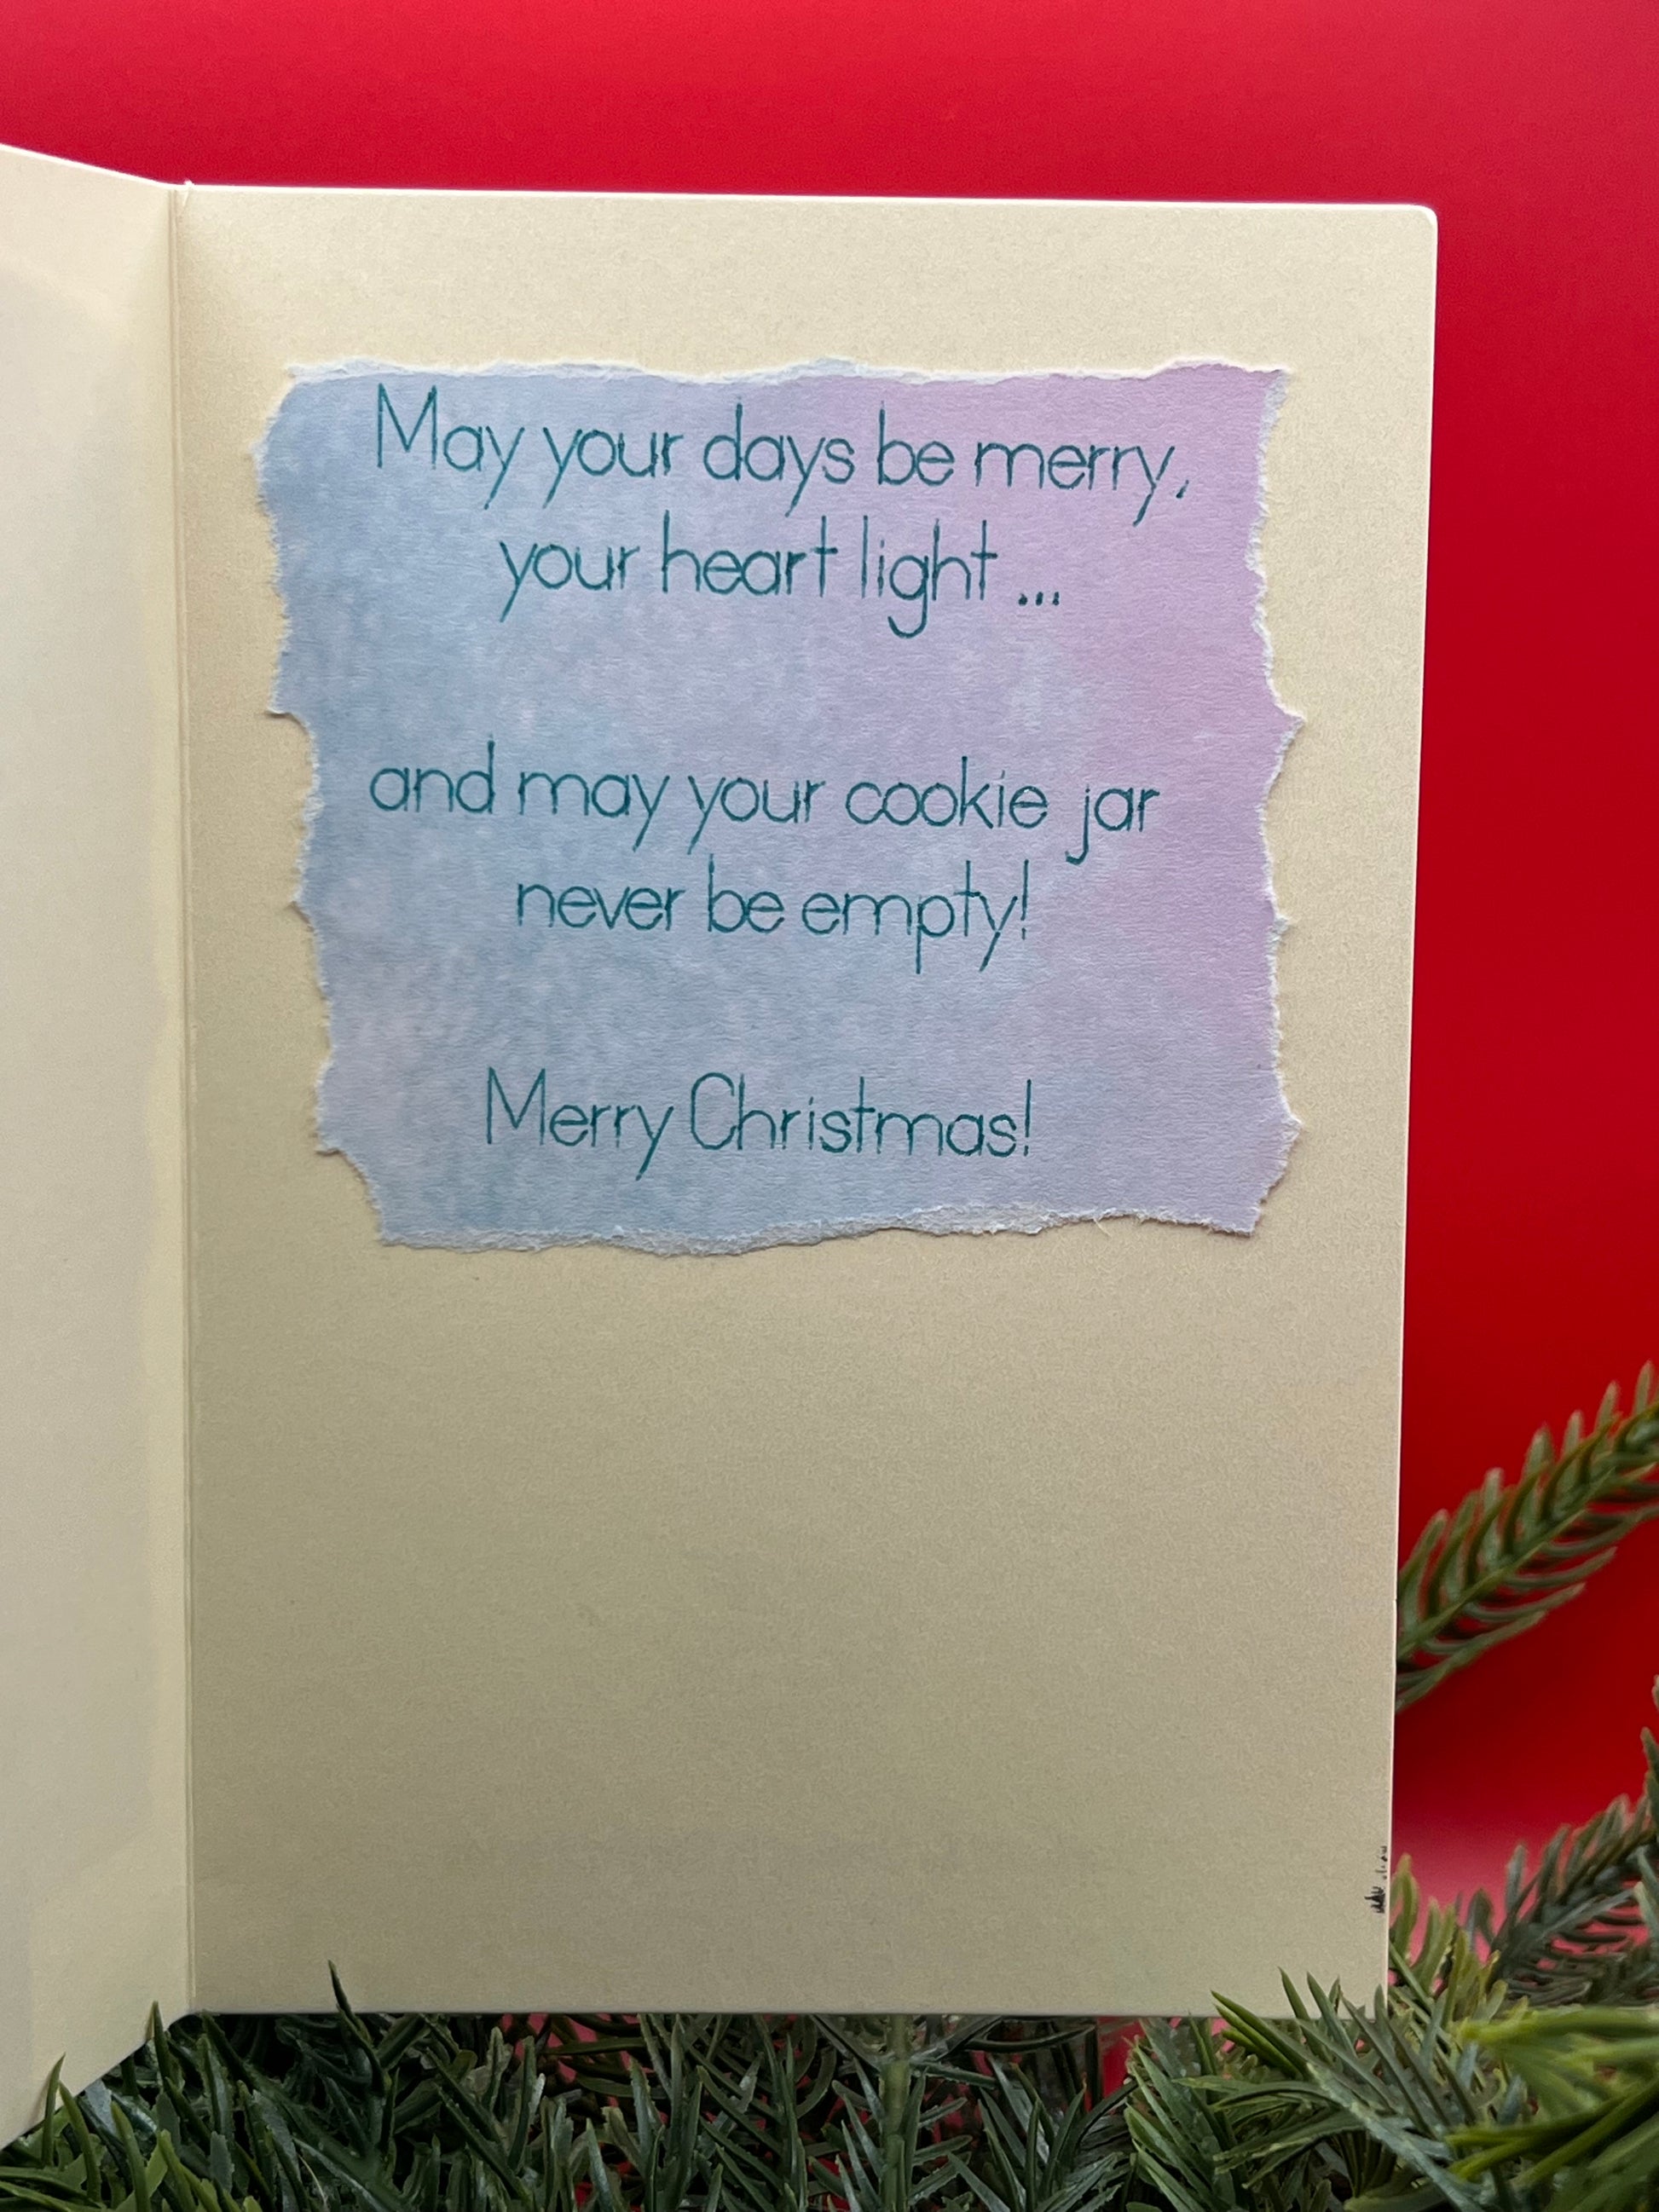 May your days be merry,
your heart light ...
and may your cookie jar
never be empty!
Merry Christmas!